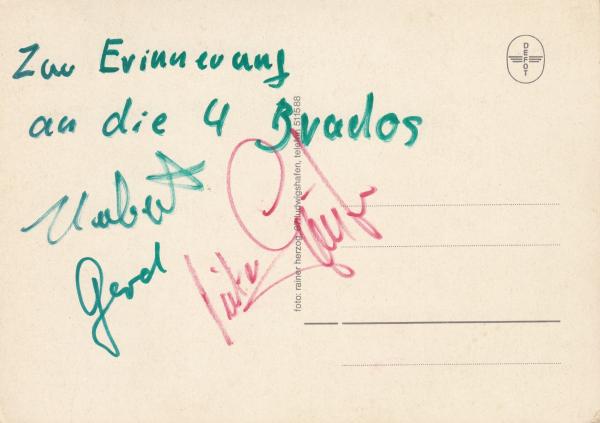 Zur Erinnerung
an die 4 Brados
Hubert
Gerd
DEFOT
foto: rainer herzog 67 ludwigshafen, telefon 511588